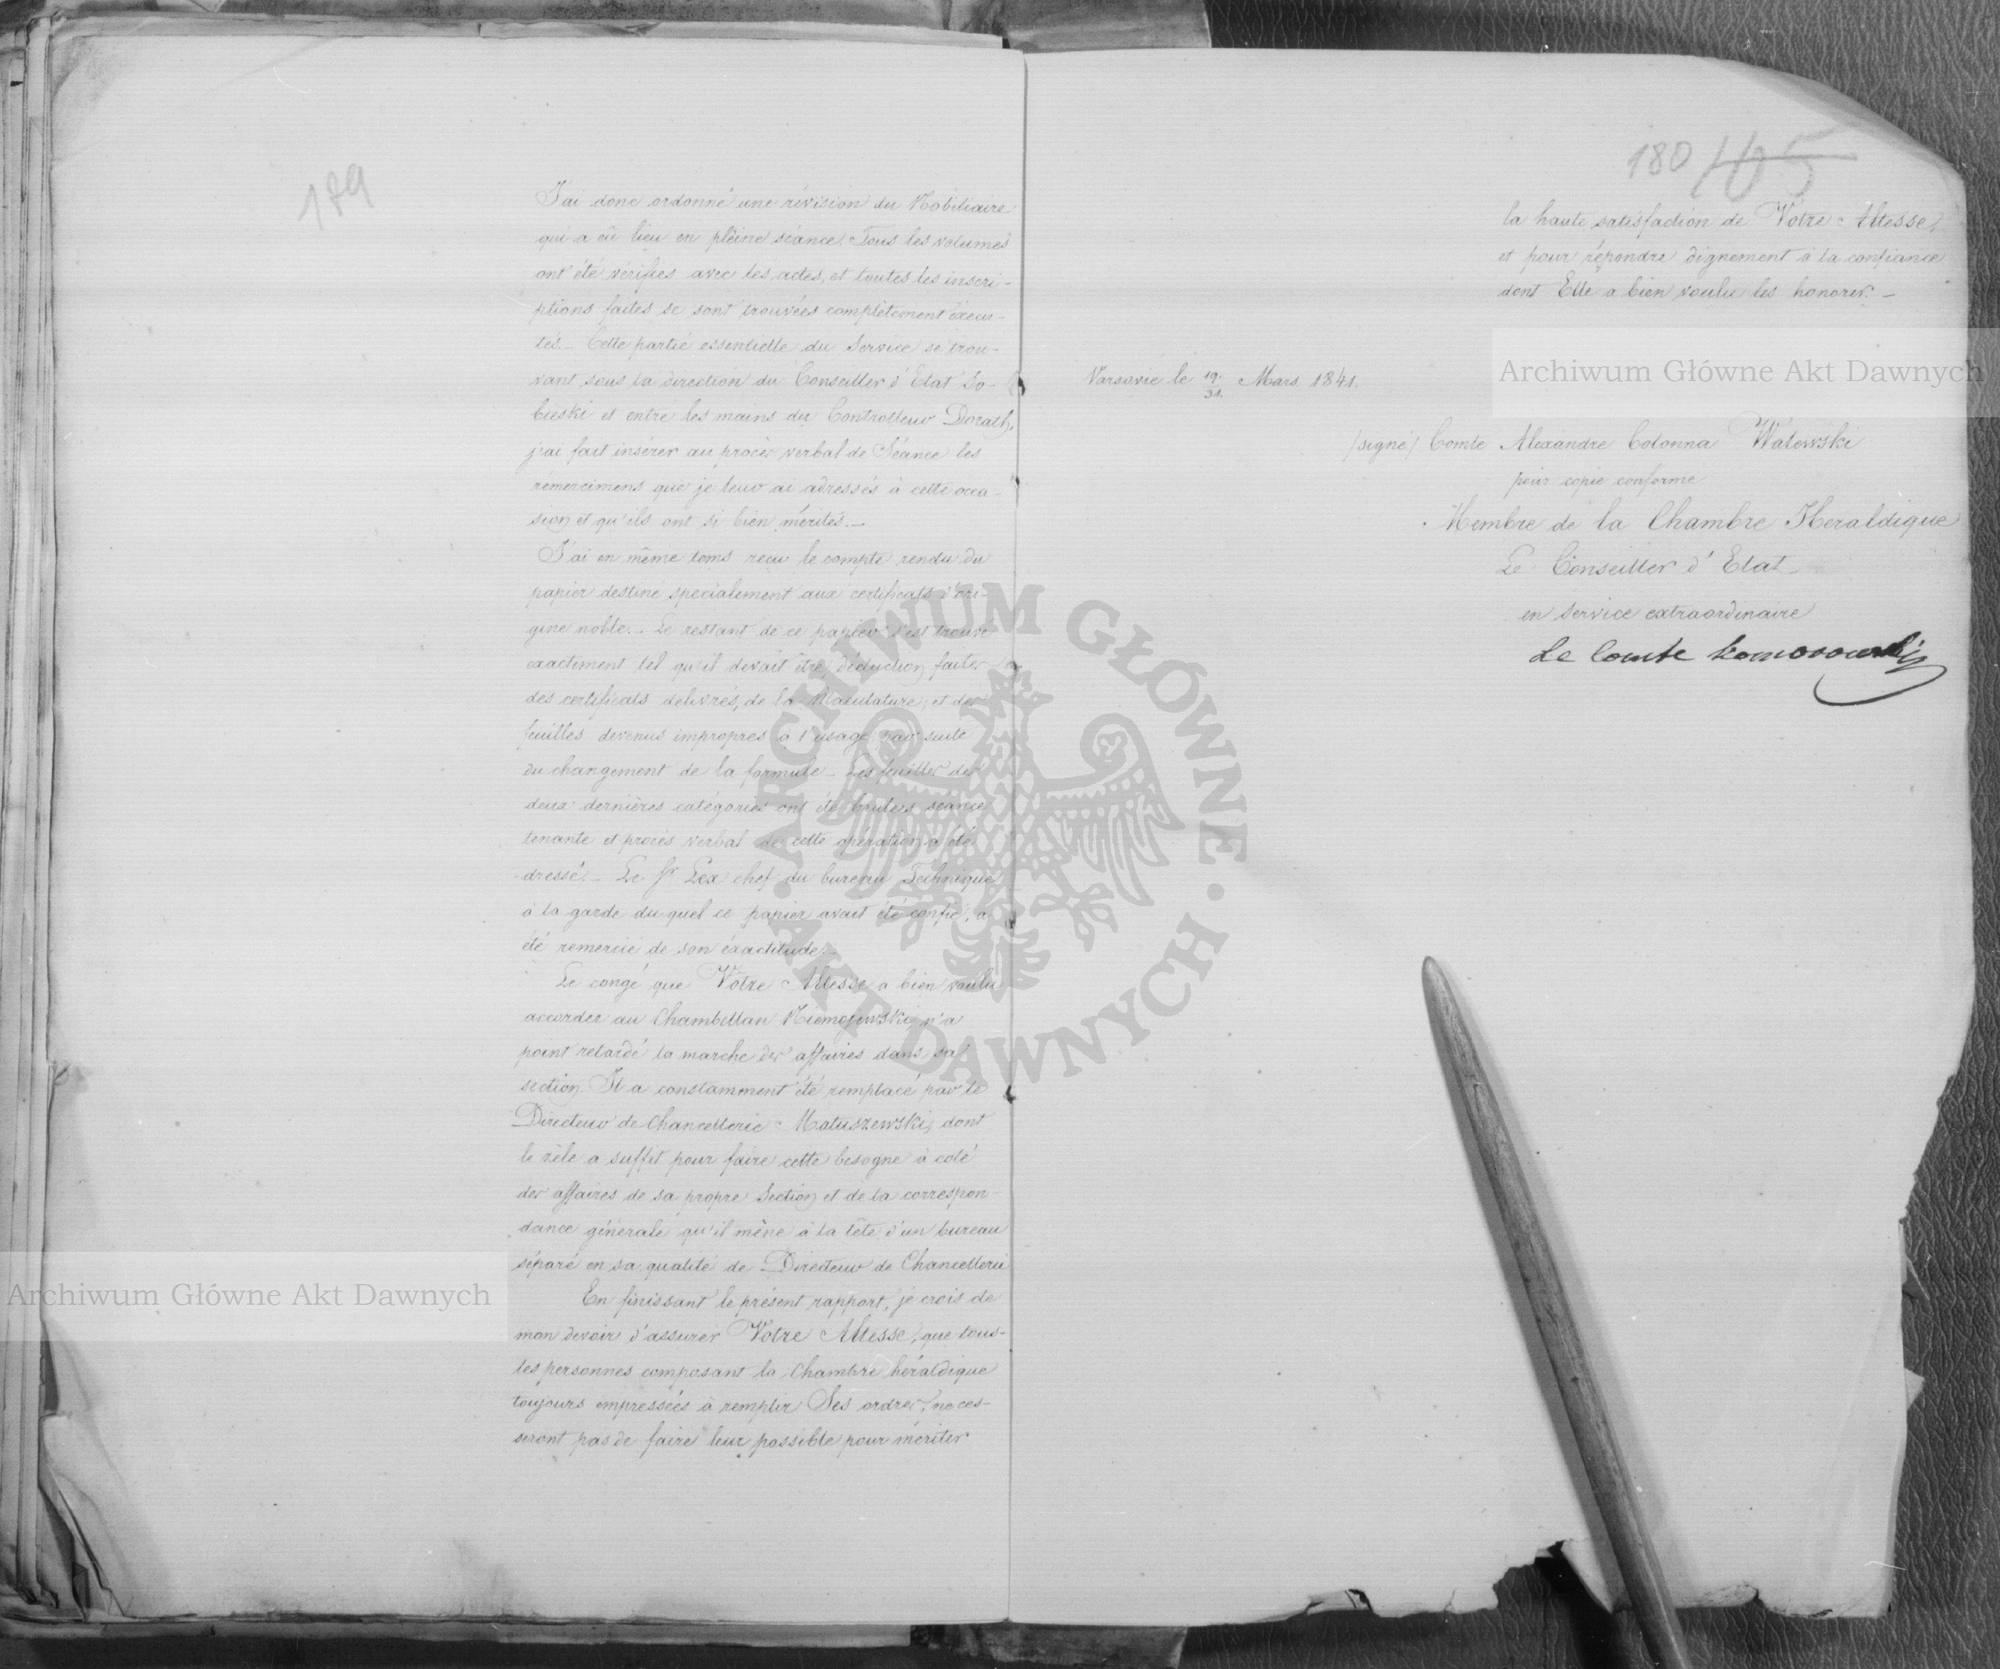 179
J'ai donc ordonné une révision du Nobiliaire
qui a eû lieu en pleine séance. Tous les volumes
ont été vérifiés avec les actes, et toutes les inscri-
ptions faites se sont trouvées complètement éxecu-
tés. _ Cette partie essentielle du Service se trou-
vant sous la direction du Conseiller d'Etat So-
bieski et entre les mains du Controlleur Dorath,
j'ai fait insérer au procès verbal de Séance les
remercimens que je leur ai adressés à cette occa-
sion et qu'ils ont si bien mérités. _
J'ai en même tems reçu le compte rendu du
papier destiné specialement aux certificats d'ori-
gine noble. _ Le restant de ce papier s'est trouvé
exactiment tel qu'il devait être, déduction faite
des certificats delivrés, de la Maculature, et des
feuilles devenus impropres à l'usage par suite
du changement de la formule _ Les feuilles des
deux dernières catégories ont été brulées séance
tenante et procès verbal de cette opération a été
dressé. _ Le Sr Lex chef du bureau Technique
à la garde du quel ce papier avait été confié, a
été remercié de son éxactitude. _
Le congé que Vôtre Altesse a bien voulu
accorder au Chambellan Niemojewski n'a
point retardé la marche des affaires dans sa
section. Il a constamment été remplacé par le
Directeur de Chancellerie Matuszewski, dont
le zèle a suffit pour faire cette besogne à coté
des affaires de sa propre Section et de la correspon
dance générale qu'il mène à la tête d'un bureau
séparé en sa qualité de Directeur de Chancellerie
En finissant le présent rapport, je crois de
mon devoir d'assurer Votre Altesse, que tous-
les personnes composant la Chambre héraldique
toujours empressées à remplir Ses ordres, ne ces-
seront pas de faire leur possible pour mériter
180 105
la haute satisfaction de Vôtre Altesse,
et pour répondre dignement à la confiance
dont Elle a bien voulu les honorer. _
Varsovie le 19/31. Mars 1841.
/signé/ Comte Alexandre Colonna Walewski
pour copie conforme
Membre de la Chambre Heraldique
Le Conseiller d'Etat
en service extraordinaire
Le Comte Komorowski
Archiwum Główne Akt Dawnych
Archiwum Główne Akt Dawnych
ARCHIWUM GŁÓWNE · AKT DAWNYCH ·